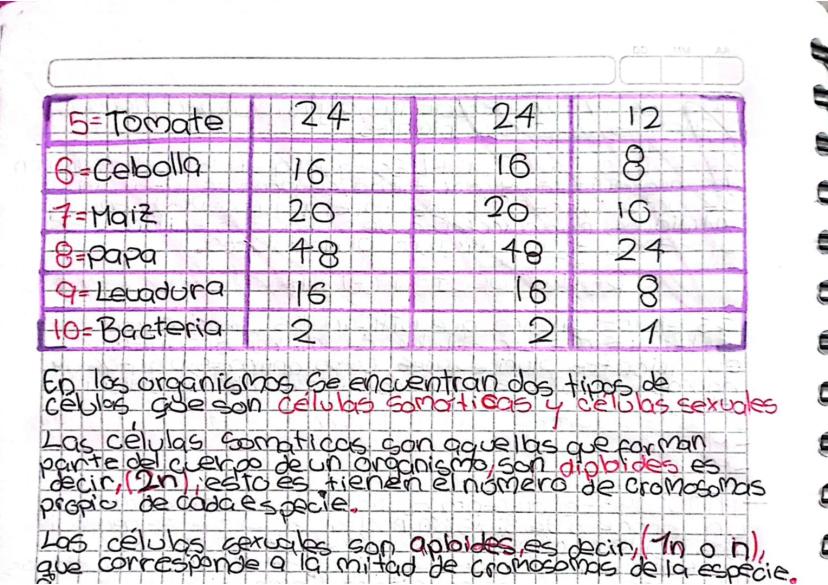 DD MM AA
5=Tomate 24 24 12
6=Cebolla 16 16 8
7=Maiz 20 20 10
8=papa 48 48 24
9=Levadura 16 16 8
10=Bacteria 2 2 1
En los organismos se encuentran dos tipos de
células que son células somáticas y células sexuales
Las células somaticas son aquellas que forman
parte del cuerpo de un organismo, son diploides es
decir, (2n), esto es tienen el número de cromosomas
propio de cada especie.
Las células sexuales son aploides, es decir, (1n o n),
que corresponde a la mitad de cromosomas de la especie.